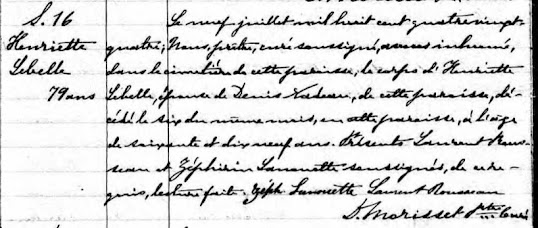 S. 16
Henriette
Lebelle
79 ans
Le neuf juillet mil huit cent quatre vingt
quatre; Nous, prêtre, curé soussigné, avons inhumé,
dans le cimetière de cette paroisse, le corps d'Henriette
Lebelle, épouse de Denis Nadeau, de cette paroisse, dé-
cédé le six du même mois, en cette paroisse, à l'âge
de soixante et dix neuf ans. Présents Laurent Rous-
seau et Zéphirin Lanouette soussignés, de ce re-
quis, lecture faite. Zéph Lanouette Laurent Rousseau
D. Morisset Ptre Curé